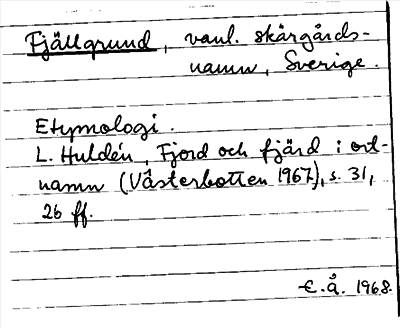 Fjällgrund, vanl. skärgårds-
namn, Sverige.
Etymologi.
L. Huldén, Fjord och fjärd i ort-
namn (Västerbotten 1967), s. 31,
26 ff.
E.Å. 1968.